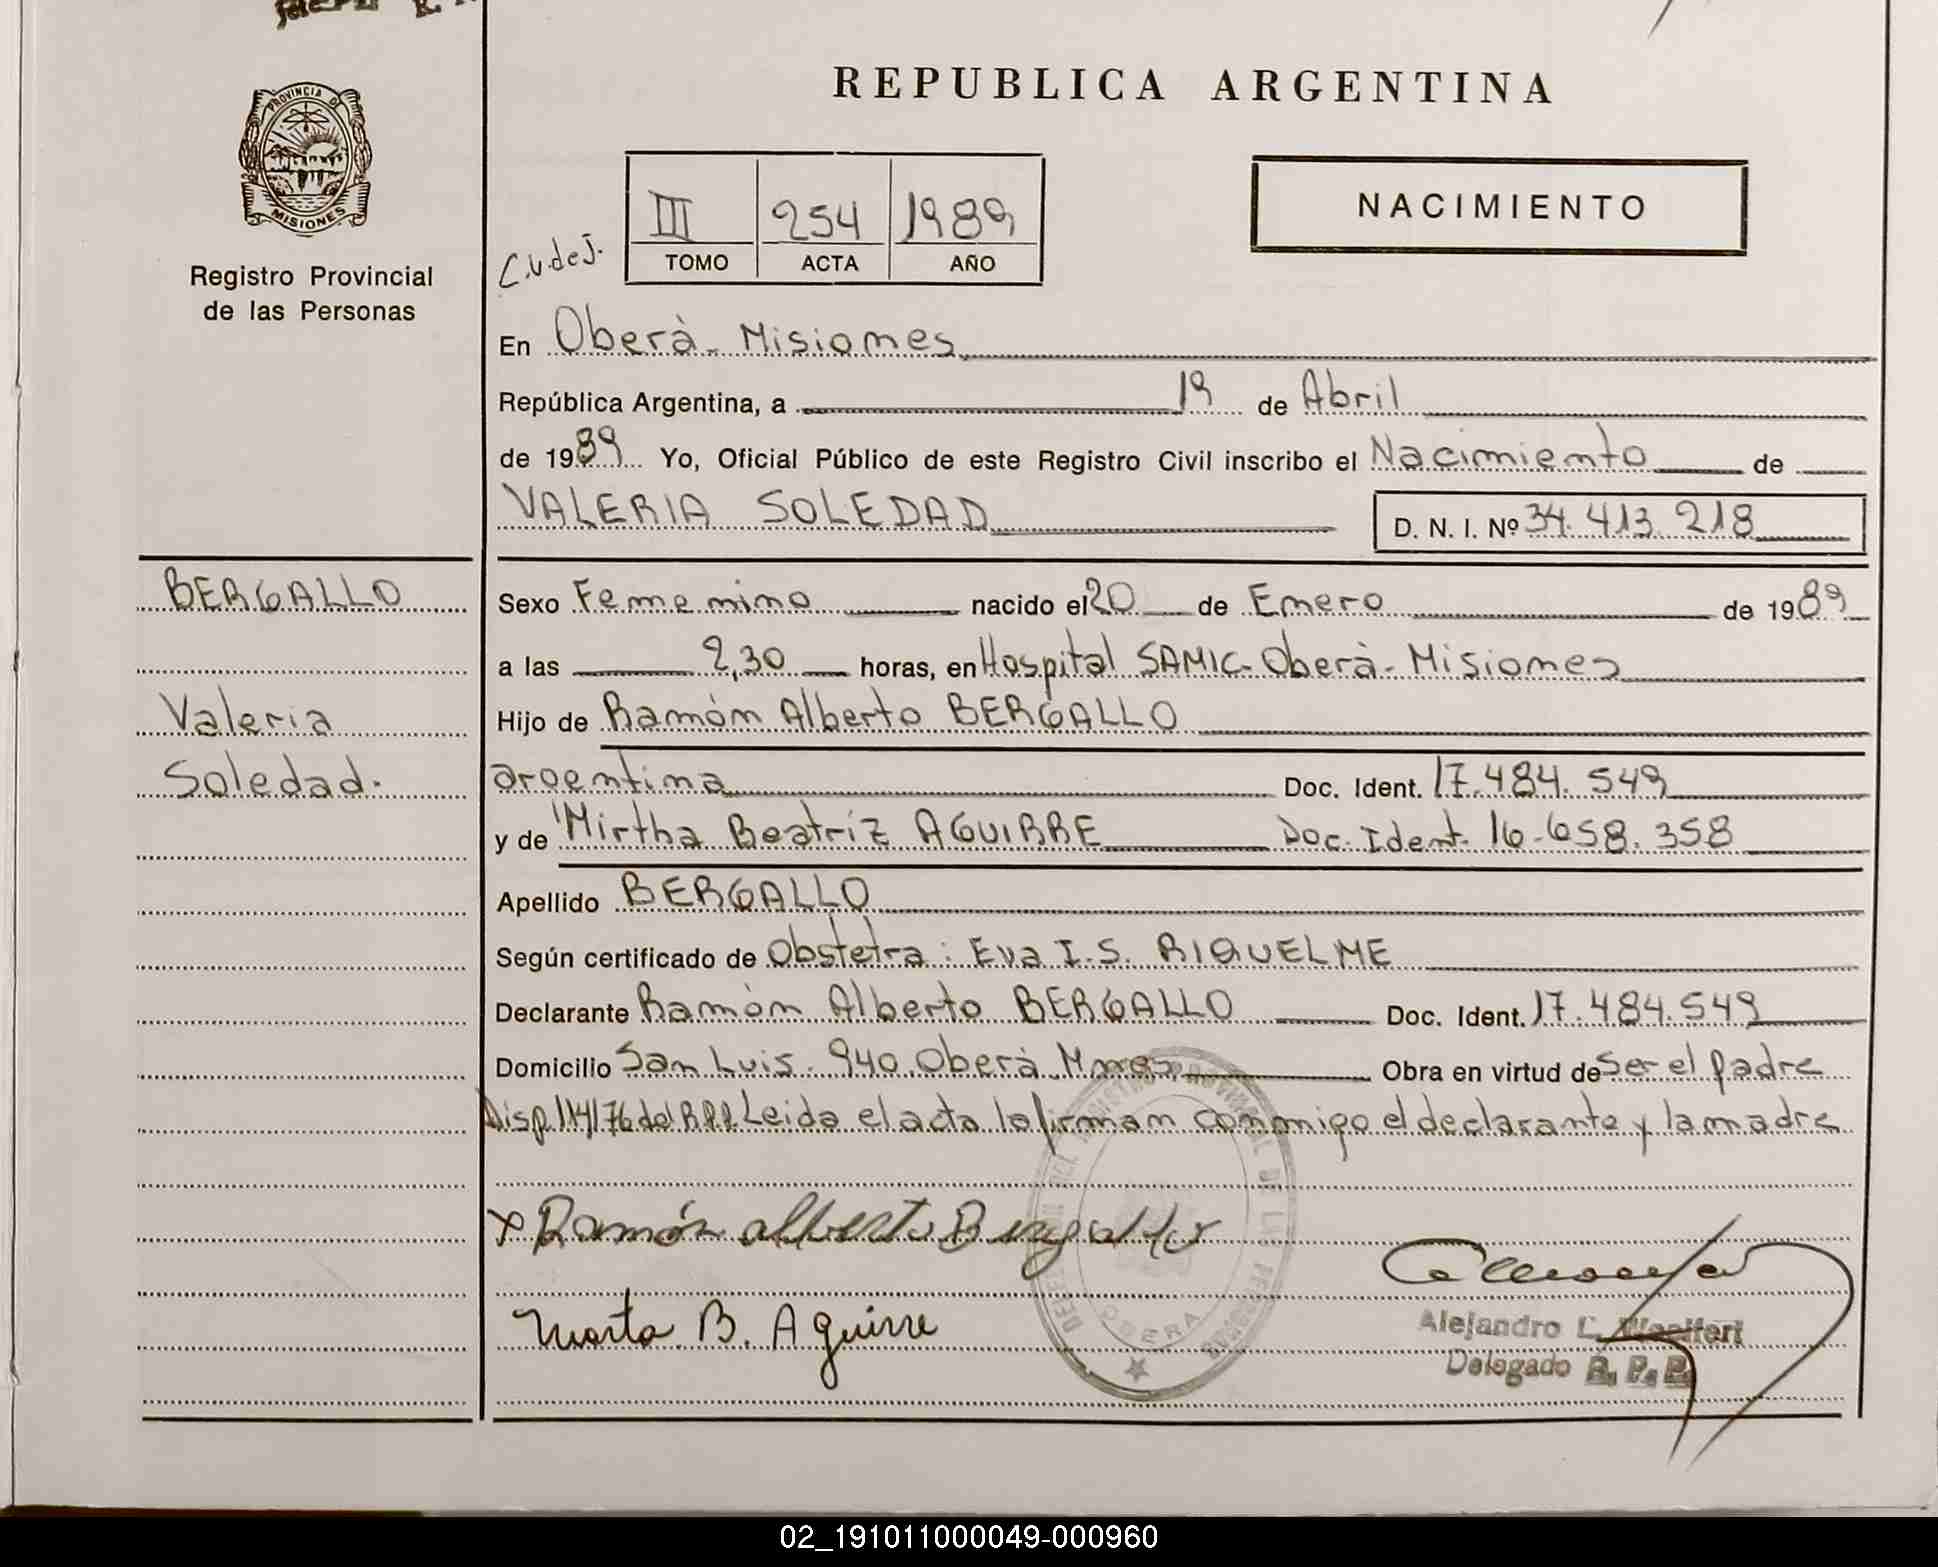 REPUBLICA ARGENTINA
PROVINCIA DE
MISIONES
Registro Provincial
de las Personas
C.V.deJ.
III 254 1989
TOMO ACTA AÑO
NACIMIENTO
En Oberà - Misiones
República Argentina, a 19 de Abril
de 1989 Yo, Oficial Público de este Registro Civil inscribo el Nacimiento de
VALERIA SOLEDAD D. N. I. Nº 34.413.218
BERGALLO
Valeria
Soledad.
Sexo Femenino nacido el 20 de Enero de 1989
a las 2,30 horas, en Hospital SAMIC - Oberà - Misiones
Hijo de Ramón Alberto BERGALLO
argentina Doc. Ident. 17.484.549
y de Mirtha Beatriz AGUIRRE Doc. Ident. 16.658.358
Apellido BERGALLO
Según certificado de Obstetra: Eva I.S. RIQUELME
Declarante Ramón Alberto BERGALLO Doc. Ident. 17.484.549
Domicilio San Luis - 940. Oberà Mnes Obra en virtud de Ser el padre
Disp.114/76 del R.P.P. Leida el acta la firman conmigo el declarante y la madre
x Ramón alberto Bergallo
Marta B. Aguirre
PROVINCIAL DE LAS PERSONAS
OBERA
Alejandro L.
Delegado R. P. P.
02_191011000049-000960